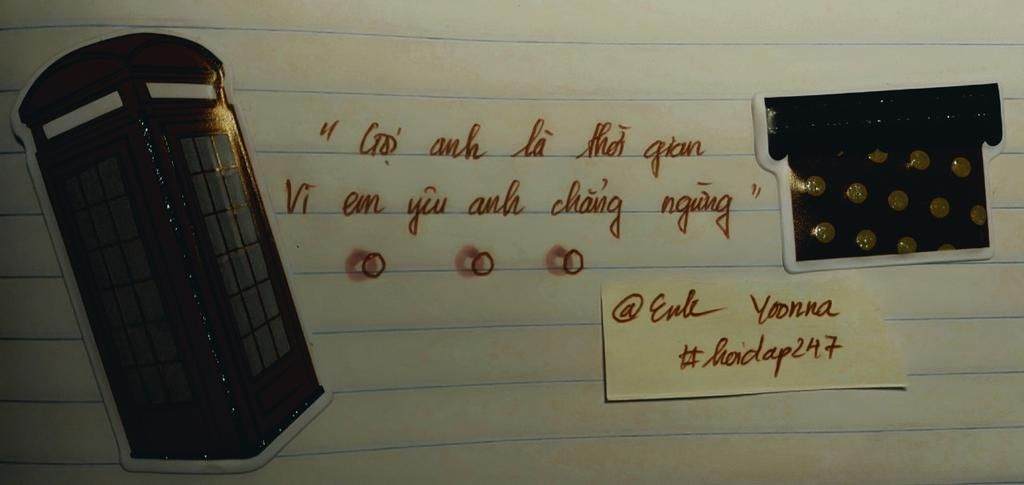 " Gọi anh là thời gian
Vì em yêu anh chẳng ngừng "
@Enk Yoonna
#hoidap247